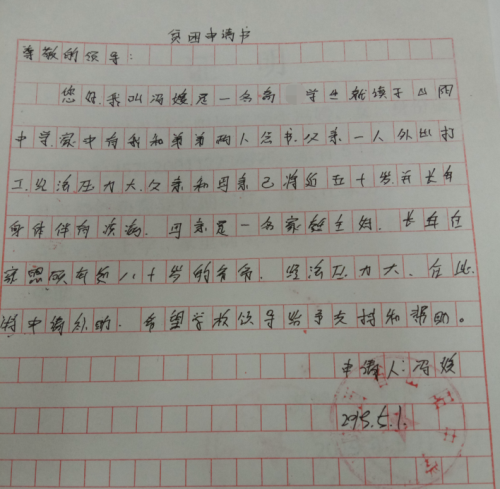 贫困申请书
尊敬的领导:
您好,我叫冯媛是一名高 学生就读于山阴
中学,家中有我和弟弟两人念书,父亲一人外出打
工,生活压力大,父亲和母亲已将近五十岁并长年
身体伴有疾病.母亲是一名家庭主妇.长年在
家照顾有近八十岁的爷爷.生活压力大.在此
特申请补助.希望学校领导给予支持和帮助。
申请人:冯媛
2019.5.1.